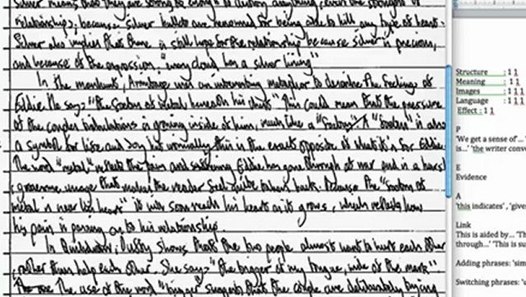 silver means that they are strong be enough to destroy anything, even the strongest of
relationships, because silver bullets are renowned for being able to kill any type of beast.
Silver also implies that there is still hope for the relationship because silver is precious,
and because of the expression, "every cloud has a silver lining".
In the manhunt, Armitage uses an interesting metaphor to describe the feelings of
Eddie. He says "the foetus of metal beneath his chest". This could mean that the pressure
of the couples tribulations is growing inside of him, much like a "foetus". A "foetus" is also
a symbol for life and joy but normally this is the exact opposite of what it is for Eddie.
The word "metal" reflects the pain and suffering Eddie has gone through at war and is a
gruesome image that makes the reader feel quite taken back. Because the "foetus of
metal is near his heart" it will soon reach his heart as it grows, which reflects how
his pain is passing on to his relationship.
In Quickdraw, Duffy shows that the two people almost want to hurt each other
rather than help each other. She says "the trigger of my tongue, wide of the mark"
The use of the word "trigger" suggests that the couple are deliberately trying
Structure : 1 1
Meaning : 1
Images : 1 1 1
Language : 1 1 1
Effect : 1 1
P
'We get a sense of…'
is…' 'the writer conv
E
Evidence
A
'this indicates', 'give
Link
This is aided by…' 'T
through…' 'This is su
Adding phrases: 'sim